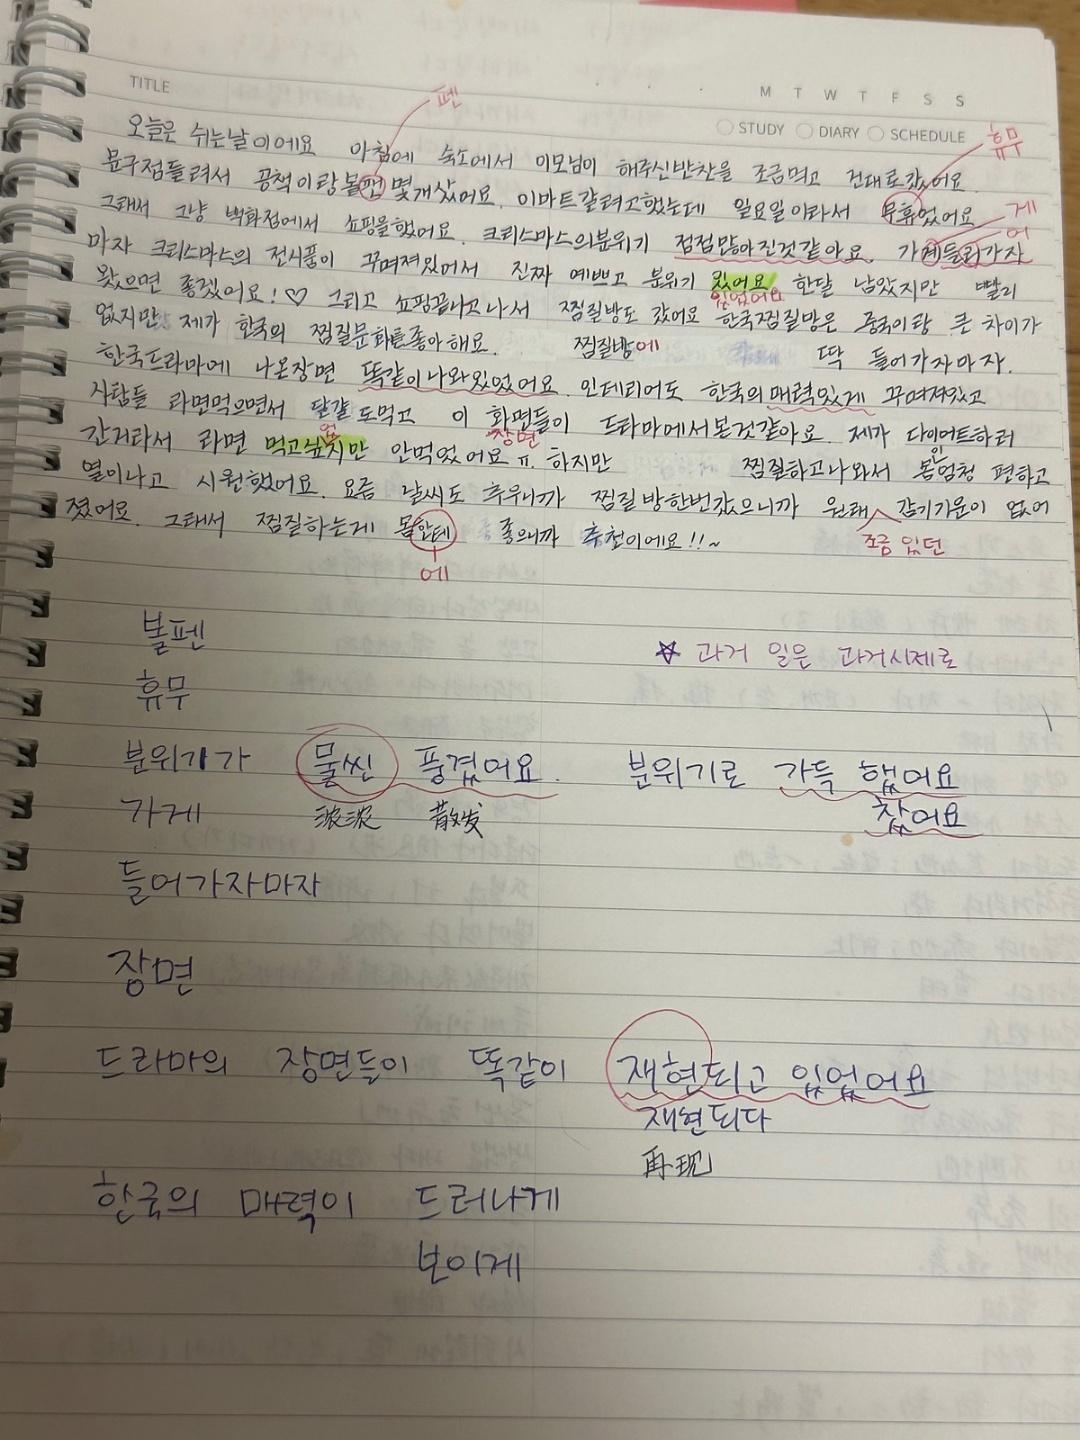 TITLE
M T W T F S S
STUDY DIARY SCHEDULE
펜
휴무
오늘은 쉬는날이에요 아침에 숙소에서 이모님이 해주신반찬을 조금먹고 건대로갔어요.
문구점들려서 공책이랑볼 몇개샀어요. 이마트갈려고했는데 일요일이라서 었어요
게
어
그래서 그냥 백화점에서 쇼핑을했어요. 크리스마스의분위기 점점많아진것같아요. 가 들 가자
마자 크리스마스의 전시품이 꾸며져있어서 진짜 예쁘고 분위기 있어요 한달 남았지만 빨리
있었어요
왔으면 좋겠어요!♡ 그리고 쇼핑끝나고나서 찜질방도 갔어요 한국찜질방은 중국이랑 큰 차이가
없지만 제가 한국의 찜질문화를좋아해요. 찜질방에 딱 들어가자마자.
한국드라마에 나온장면 똑같이나와있었어요. 인테리어도 한국의매력있게 꾸며져있고
사람들 라면먹으면서 달걀도먹고 이 화면들이 드라마에서본것같아요. 제가 다이어트하러
장면
었
간거라서 라면 먹고싶지만 안먹었어요ㅠ. 하지만 찜질하고나와서 몸엄청 편하고
이
열이나고 시원했어요. 요즘 날씨도 추우니까 찜질방한번갔으니까 원래 감기기운이 없어
조금 있던
졌어요. 그래서 찜질하는게 몸 좋으니까 추천이에요!!~
에
볼펜
☆ 과거 일은 과거시제로
휴무
분위기가 물씬 풍겼어요. 분위기로 가득 했어요
가게 浓浓 散发 찼어요
들어가자마자
장면
드라마의 장면들이 똑같이 재현되고 있었어요
재현되다
再现
한국의 매력이 드러나게
보이게